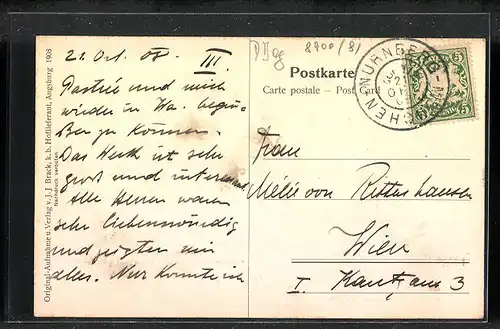 8700/81
Postkarte
Carte postale – Post Card
NÜRNBERG - MÜNCHEN
5 5
21. Oct. 08. III.
und mich
wieder in
zu können.
Das Werk ist sehr
gross und interessant
Alle Herren waren
sehr liebenswürdig
und zeigten mir
alles. Nur konnte ich
Frau
Mélie von Rittershausen
Wien
I. Kantgasse 3
Original-Aufnahme u. Verlag v. J. J. Brack, k. b. Hoflieferant, Augsburg 1908
Nachdruck verboten